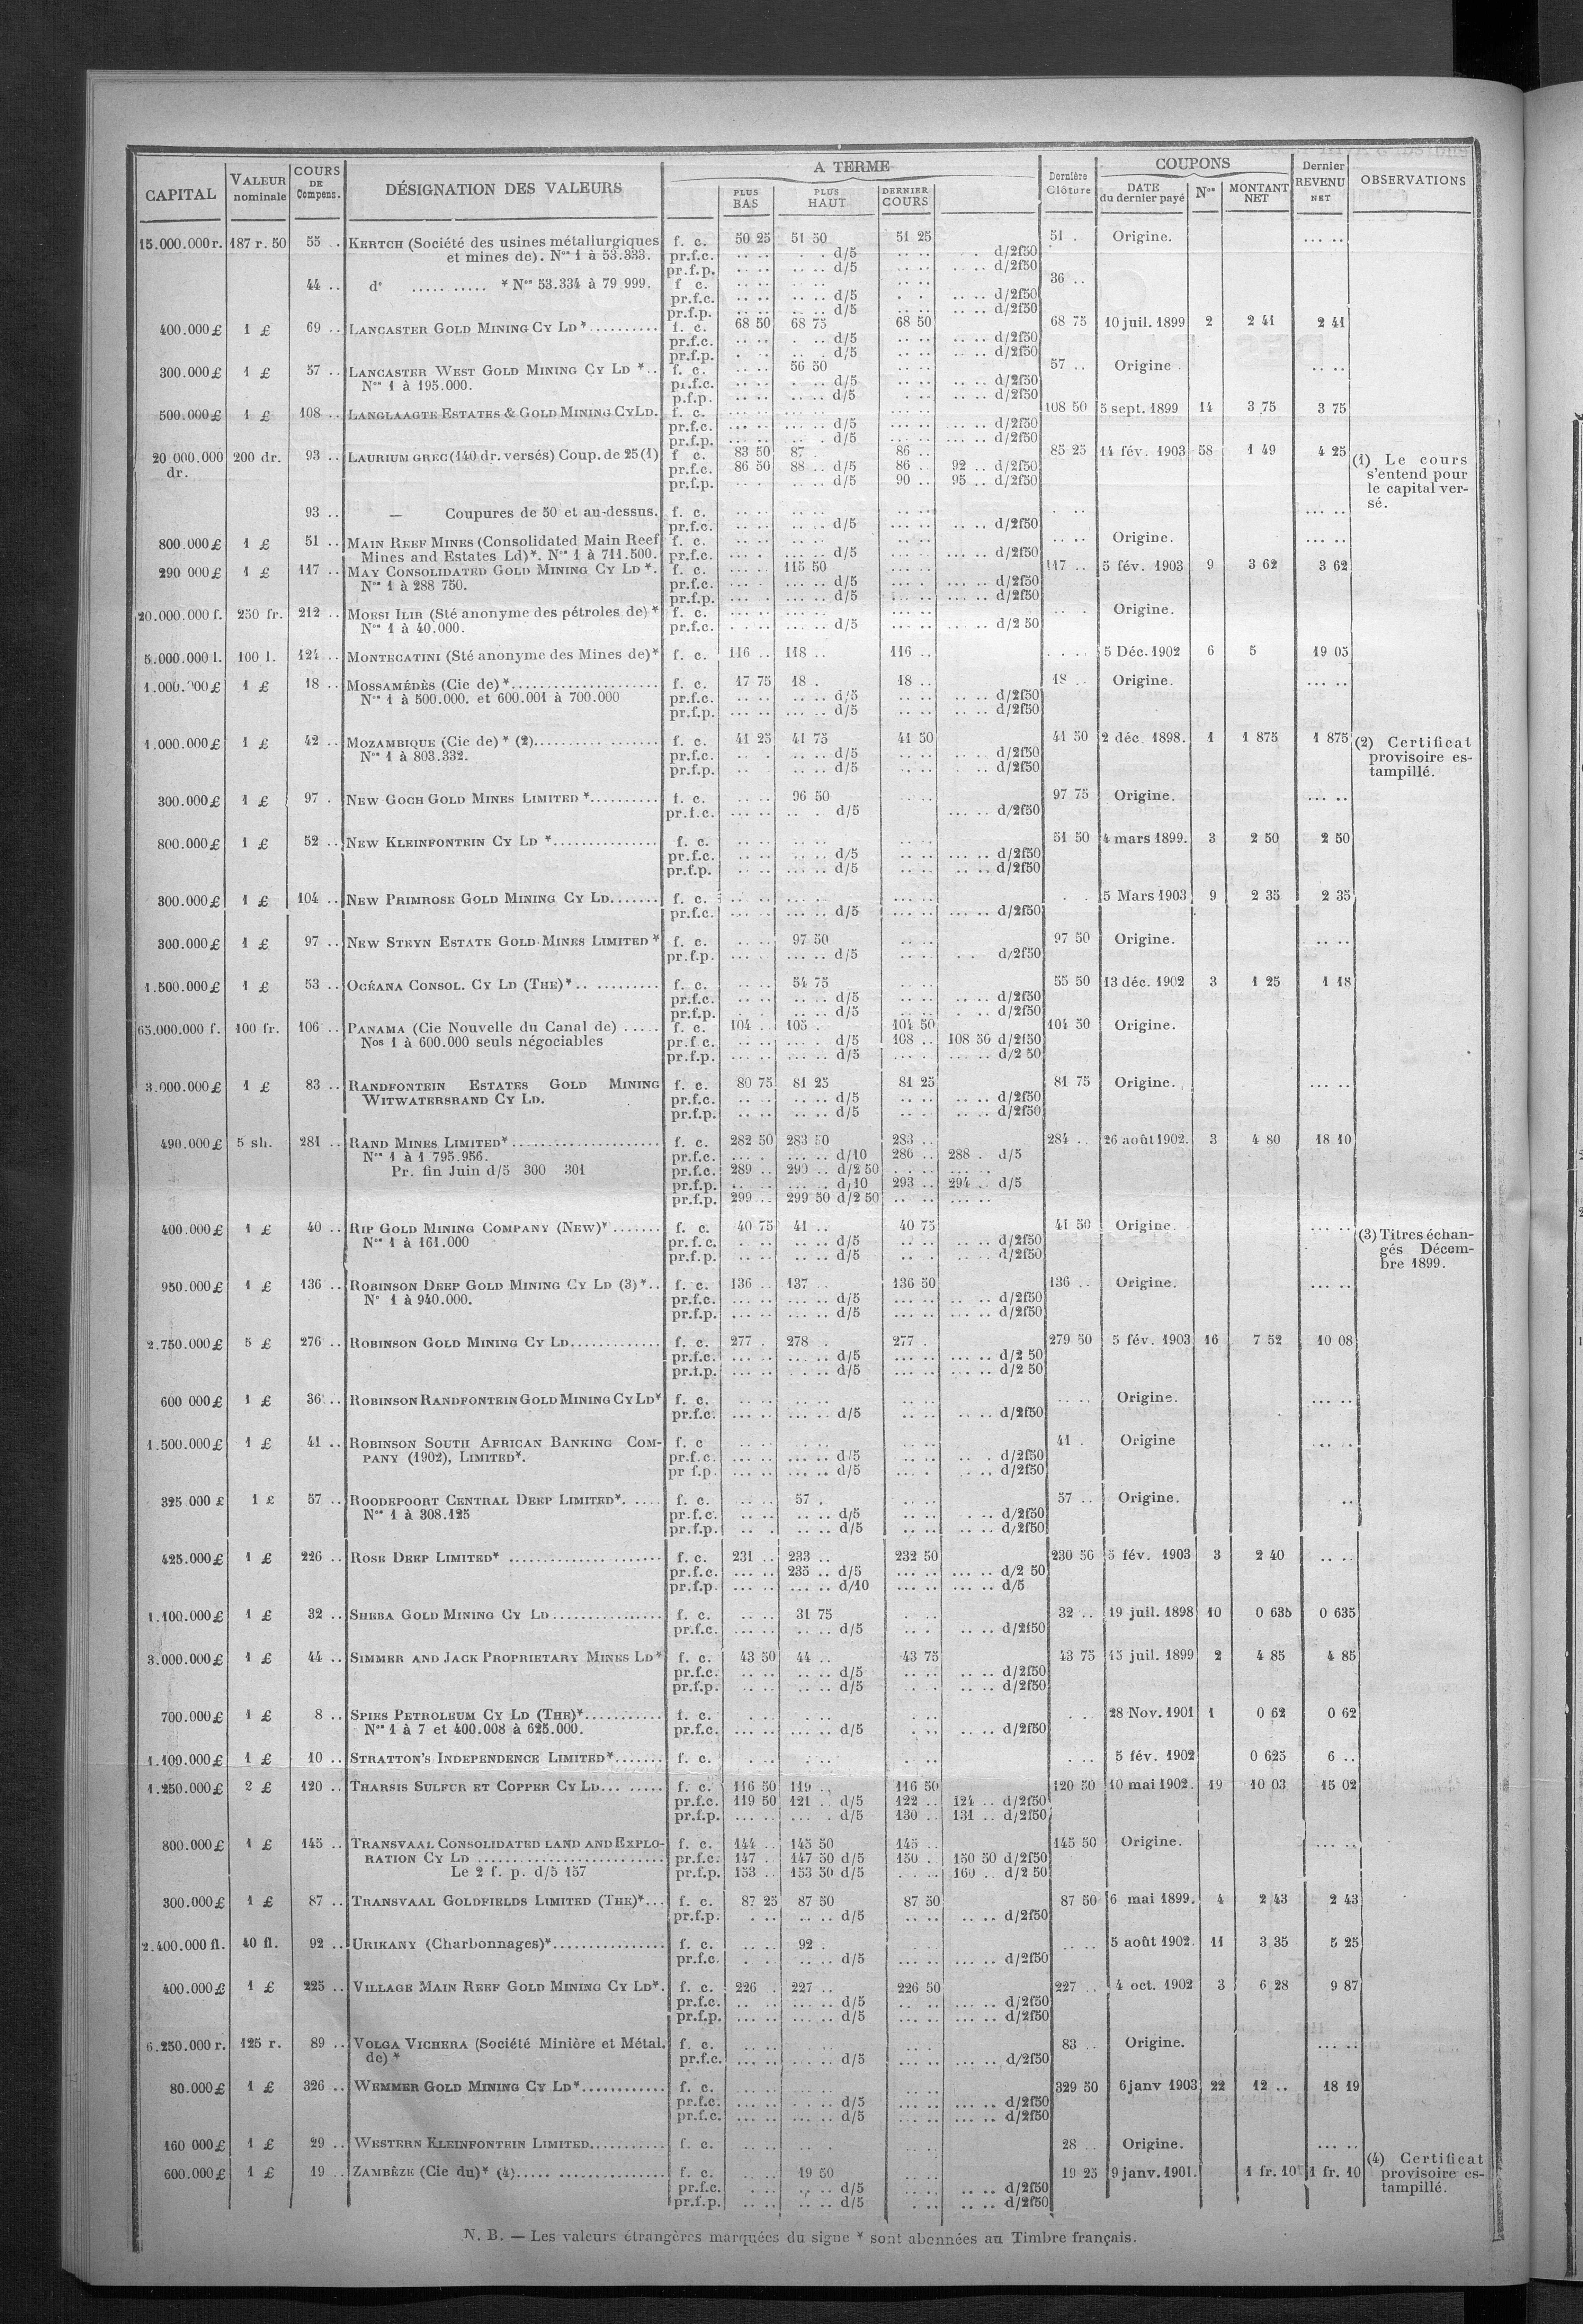 CAPITAL VALEUR nominale COURS DE Compens. DÉSIGNATION DES VALEURS A TERME PLUS BAS PLUS HAUT DERNIER COURS Dernière Clôture COUPONS DATE du dernier payé Nos MONTANT NET Dernier REVENU NET OBSERVATIONS
15.000.000 r. 187 r. 50 55 . KERTCH (Société des usines métallurgiques f. c. 50 25 51 50 51 25 51 . Origine. ... ..
et mines de). Nos 1 à 53.333. pr.f.c. d/5 d/2f50
pr.f.p. d/5 d/2f50
44 .. do ..... ..... * Nos 53.334 à 79 999. f c. 36 ..
pr.f.c. d/5 d/2f50
pr.f.p. d/5 d/2f50
400.000 £ 1 £ 69 .. LANCASTER GOLD MINING CY LD*.......... f. c. 68 50 68 75 68 50 68 75 10 juil. 1899 2 2 41 2 41
pr.f.c. d/5 d/2f50
pr.f.p. d/5 d/2f50
300.000 £ 1 £ 57 .. LANCASTER WEST GOLD MINING CY LD *.. f. c. 56 50 57 .. Origine .
Nos 1 à 195.000. pr.f.c. d/5 d/2f50
p.f.p. d/5 d/2f50
500.000 £ 1 £ 108 .. LANGLAAGTE ESTATES & GOLD MINING CY LD. f. c. 108 50 5 sept. 1899 14 3 75 3 75
pr.f.c. d/5 d/2f50
pr.f.p. d/5 d/2f50
20 000.000 dr. 200 dr. 93 .. LAURIUM GREC (140 dr. versés) Coup. de 25 (1) f c. 83 50 87 . 86 .. 85 25 14 fév. 1903 58 1 49 4 25 (1) Le cours s'entend pour le capital versé.
pr.f.c. 86 50 88 .. d/5 86 .. 92 .. d/2f50
pr.f.p. d/5 90 .. 95 .. d/2f50
93 .. — Coupures de 50 et au-dessus. f. c.
pr.f.c. d/5 d/2f50
800.000 £ 1 £ 51 .. MAIN REEF MINES (Consolidated Main Reef f. c. Origine.
Mines and Estates Ld)*. Nos 1 à 711.500. pr.f.c. d/5 d/2f50
290 000 £ 1 £ 117 .. MAY CONSOLIDATED GOLD MINING CY LD *. f. c. 115 50 117 .. 5 fév. 1903 9 3 62 3 62
Nos 1 à 288 750. pr.f.c. d/5 d/2f50
pr.f.p. d/5 d/2f50
20.000.000 f. 250 fr. 212 .. MORSI ILIR (Sté anonyme des pétroles de) * f. c. Origine.
Nos 1 à 40.000. pr.f.c. d/5 d/2 50
5.000.000 l. 100 l. 124 .. MONTECATINI (Sté anonyme des Mines de)* f. c. 116 .. 118 .. 116 .. 5 Déc. 1902 6 5 19 05
1.000.000 £ 1 £ 18 .. MOSSAMÉDÈS (Cie de) *.................... f. c. 17 75 18 . 18 .. 18 .. Origine.
Nos 1 à 500.000. et 600.001 à 700.000 pr.f.c. d/5 d/2f50
pr.f.p. d/5 d/2f50
1.000.000 £ 1 £ 42 .. MOZAMBIQUE (Cie de) * (2)................. f. c. 41 25 41 75 41 50 41 50 2 déc. 1898. 1 1 875 1 875 (2) Certificat provisoire estampillé.
Nos 1 à 803.332. pr.f.c. d/5 d/2f50
pr.f.p. d/5 d/2f50
300.000 £ 1 £ 97 . NEW GOCH GOLD MINES LIMITED *.......... f. c. 96 50 97 75 Origine.
pr.f.c. d/5 d/2f50
800.000 £ 1 £ 52 .. NEW KLEINFONTEIN CY LD *............... f. c. 51 50 4 mars 1899. 3 2 50 2 50
pr.f.c. d/5 d/2f50
pr.f.p. d/5 d/2f50
300.000 £ 1 £ 104 .. NEW PRIMROSE GOLD MINING CY LD....... f. c. 5 Mars 1903 9 2 35 2 35
pr.f.c. d/5 d/2f50
300.000 £ 1 £ 97 .. NEW STEYN ESTATE GOLD MINES LIMITED * f. c. 97 50 97 50 Origine.
pr.f.p. d/5 d/2f50
1.500.000 £ 1 £ 53 .. OCÉANA CONSOL. CY LD (THE)*.. ......... f. c. 54 75 55 50 13 déc. 1902 3 1 25 1 18
pr.f.c. d/5 d/2f50
pr.f.p. d/5 d/2f50
65.000.000 f. 100 fr. 106 .. PANAMA (Cie Nouvelle du Canal de) ..... f. c. 104 .. 105 . 104 50 104 50 Origine.
Nos 1 à 600.000 seuls négociables pr.f c. d/5 108 .. 108 50 d/2f50
pr.f.p. d/5 d/2 50
3.000.000 £ 1 £ 83 .. RANDFONTEIN ESTATES GOLD MINING f. c. 80 75 81 25 81 25 81 75 Origine.
WITWATERSRAND CY LD. pr.f.c. d/5 d/2f50
pr.f.p. d/5 d/2f50
490.000 £ 5 sh. 281 .. RAND MINES LIMITED*..................... f. c. 282 50 283 50 283 .. 284 .. 26 août 1902. 3 4 80 18 10
Nos 1 à 1 795.956. pr.f.c. d/10 286 .. 288 . d/5
Pr. fin Juin d/5 300 301 pr.f.c. 289 .. 290 .. d/2 50
pr.f.p. d/10 293 .. 294 .. d/5
pr.f.p. 299 .. 299 50 d/2 50
400.000 £ 1 £ 40 .. RIP GOLD MINING COMPANY (NEW)* ....... f. c. 40 75 41 .. 40 75 41 50 Origine. (3) Titres échangés Décembre 1899.
Nos 1 à 161.000 pr.f.c. d/5 d/2f50
pr.f.p. d/5 d/2f50
950.000 £ 1 £ 136 .. ROBINSON DEEP GOLD MINING CY LD (3) *.. f. c. 136 .. 137 .. 136 50 136 .. Origine.
No 1 à 940.000. pr.f.c. d/5 d/2f50
pr.f.p. d/5 d/2f50
2.750.000 £ 5 £ 276 .. ROBINSON GOLD MINING CY LD............. f. c. 277 . 278 . 277 . 279 50 5 fév. 1903 16 7 52 10 08
pr.f.c. d/5 d/2 50
pr.f.p. d/5 d/2 50
600 000 £ 1 £ 36 .. ROBINSON RANDFONTEIN GOLD MINING CY LD* f. c. Origine.
pr.f.c. d/5 d/2f50
1.500.000 £ 1 £ 41 .. ROBINSON SOUTH AFRICAN BANKING COM- f. c 41 . Origine
PANY (1902), LIMITED*. pr.f.c. d/5 d/2f50
pr f.p. d/5 d/2f50
325 000 £ 1 £ 57 .. ROODEPOORT CENTRAL DEEP LIMITED*. .... f. c. 57 . 57 .. Origine.
Nos 1 à 308.125 pr.f.c. d/5 d/2f50
pr.f.p. d/5 d/2f50
425.000 £ 1 £ 226 .. ROSE DEEP LIMITED* .............. ....... f. c. 231 .. 233 .. 232 50 230 50 5 fév. 1903 3 2 40
pr.f.c. 235 .. d/5 d/2 50
pr.f.p. d/10 d/5
1.100.000 £ 1 £ 32 .. SHEBA GOLD MINING CY LD............... f. c. 31 75 32 .. 19 juil. 1898 10 0 635 0 635
pr.f.c. d/5 d/2f50
3.000.000 £ 1 £ 44 .. SIMMER AND JACK PROPRIETARY MINES LD* f. c. 43 50 44 .. 43 75 43 75 15 juil. 1899 2 4 85 4 85
pr.f.c. d/5 d/2f50
pr.f.p. d/5 d/2f50
700.000 £ 1 £ 8 .. SPIES PETROLEUM CY LD (THE)*........... f. c. 28 Nov. 1901 1 0 62 0 62
Nos 1 à 7 et 400.008 à 625.000. pr.f.c. d/5 d/2f50
1.100.000 £ 1 £ 10 .. STRATTON'S INDEPENDENCE LIMITED*....... f. c. 5 fév. 1902 0 625 6 ..
1.250.000 £ 2 £ 120 .. THARSIS SULFUR ET COPPER CY LD... ..... f. c. 116 50 119 .. 116 50 120 50 10 mai 1902. 19 10 03 15 02
pr.f.c. 119 50 121 . d/5 122 .. 124 .. d/2f50
pr.f.p. d/5 130 .. 131 .. d/2f50
800.000 £ 1 £ 145 .. TRANSVAAL CONSOLIDATED LAND AND EXPLO- f. c. 144 .. 145 50 145 .. 145 50 Origine.
RATION CY LD .......................... pr.f.c. 147 .. 147 50 d/5 150 .. 150 50 d/2f50
Le 2 f. p. d/5 157 pr.f.p. 153 .. 153 50 d/5 160 .. d/2 50
300.000 £ 1 £ 87 .. TRANSVAAL GOLDFIELDS LIMITED (THE)*... f. c. 87 25 87 50 87 50 87 50 6 mai 1899. 4 2 43 2 43
pr.f.p. d/5 d/2f50
2.400.000 fl. 40 fl. 92 .. URIKANY (Charbonnages)*................ f. c. 92 . 5 août 1902. 11 3 35 5 25
pr.f.c. d/5 d/2f50
400.000 £ 1 £ 225 .. VILLAGE MAIN REEF GOLD MINING CY LD*. f. c. 226 . 227 .. 226 50 227 .. 4 oct. 1902 3 6 28 9 87
pr.f.c. d/5 d/2f50
pr.f.p. d/5 d/2f50
6.250.000 r. 125 r. 89 .. VOLGA VICHERA (Société Minière et Métal. f. c. 83 .. Origine.
de) * pr.f.c. d/5 d/2f50
80.000 £ 1 £ 326 .. WEMMER GOLD MINING CY LD*............ f. c. 329 50 6 janv 1903 22 12 .. 18 19
pr.f.c. d/5 d/2f50
pr.f.c. d/5 d/2f50
160 000 £ 1 £ 29 .. WESTERN KLEINFONTEIN LIMITED........... f. c. 28 .. Origine.
600.000 £ 1 £ 19 .. ZAMBÈZE (Cie du)* (4)..... ............... f. c. 19 50 19 25 9 janv. 1901. 1 fr. 10 1 fr. 10 (4) Certificat provisoire estampillé.
pr.f.c. d/5 d/2f50
pr.f.p. d/5 d/2f50
N. B. — Les valeurs étrangères marquées du signe * sont abonnées au Timbre français.